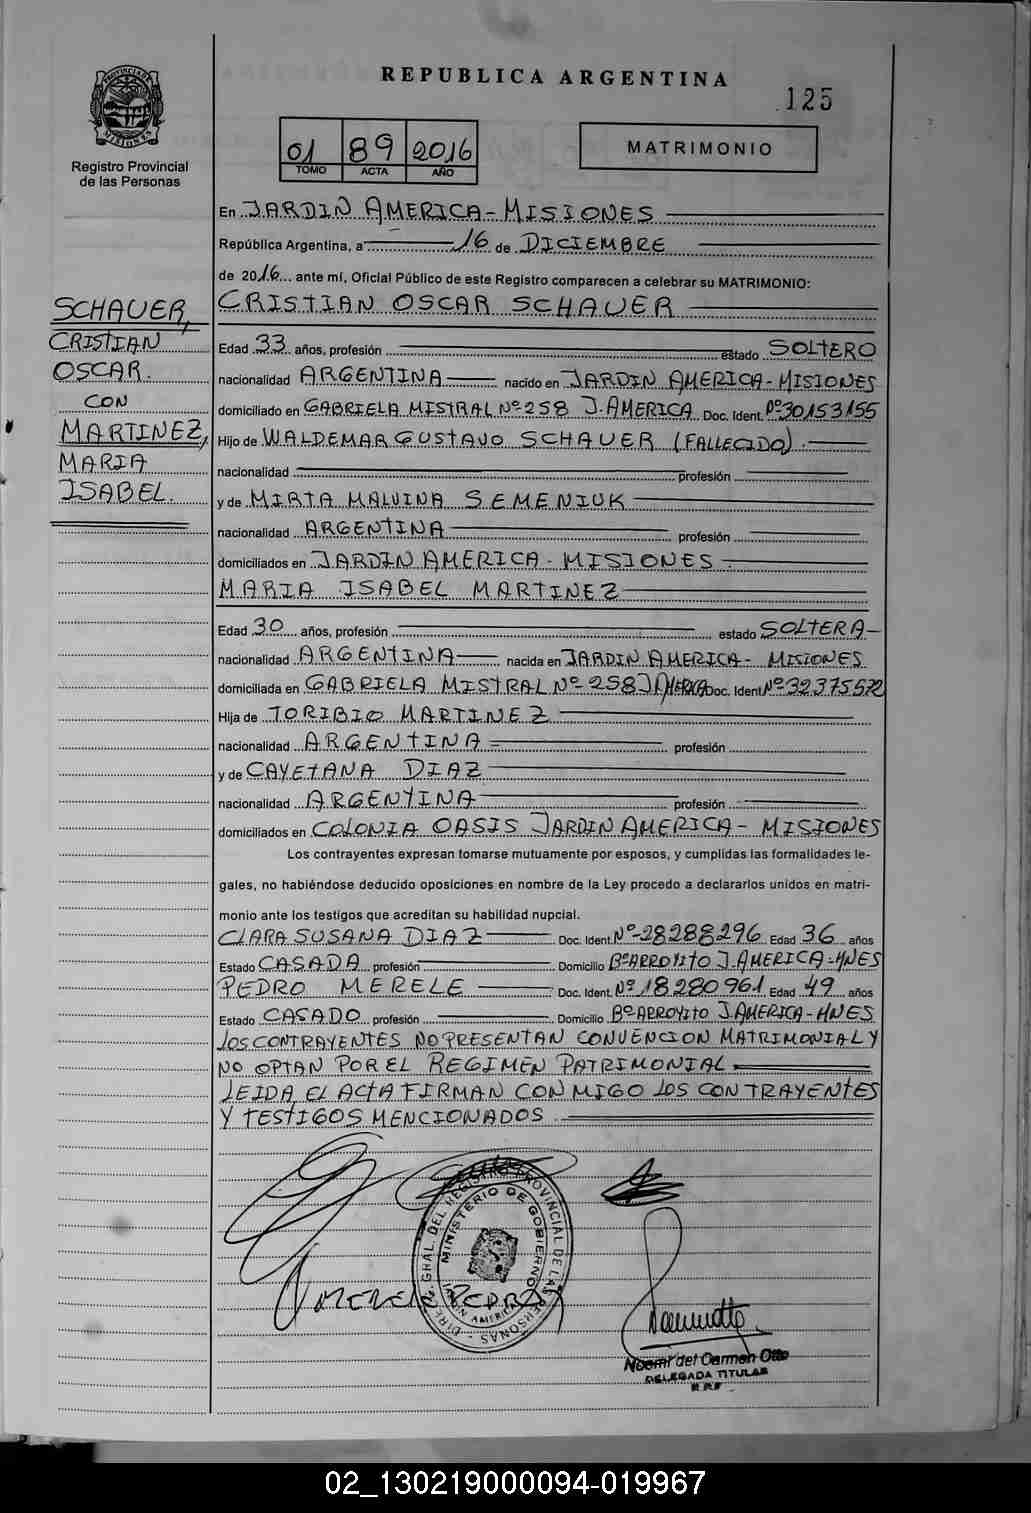 REPUBLICA ARGENTINA
125
PROVINCIA DE MISIONES
Registro Provincial
de las Personas
01 89 2016
TOMO ACTA AÑO
MATRIMONIO
En JARDIN AMERICA - MISIONES
República Argentina, a 16 de DICIEMBRE
de 2016 ante mí, Oficial Público de este Registro comparecen a celebrar su MATRIMONIO:
CRISTIAN OSCAR SCHAUER
SCHAUER,
CRISTIAN
OSCAR.
CON
MARTINEZ,
MARIA
ISABEL.
Edad 33 años, profesión estado SOLTERO
nacionalidad ARGENTINA nacido en JARDIN AMERICA - MISIONES
domiciliado en GABRIELA MISTRAL Nº 258 J. AMERICA Doc. Ident. Nº 30153155
Hijo de WALDEMAR GUSTAVO SCHAUER (FALLECIDO).
nacionalidad profesión
y de MIRTA MALVINA SEMENIUK
nacionalidad ARGENTINA profesión
domiciliados en JARDIN AMERICA - MISIONES
MARIA ISABEL MARTINEZ
Edad 30 años, profesión estado SOLTERA
nacionalidad ARGENTINA nacida en JARDIN AMERICA - MISIONES
domiciliada en GABRIELA MISTRAL Nº 258 J AMERICA Doc. Ident Nº 32375572
Hija de TORIBIO MARTINEZ
nacionalidad ARGENTINA profesión
y de CAYETANA DIAZ
nacionalidad ARGENTINA profesión
domiciliados en COLONIA OASIS JARDIN AMERICA - MISIONES
Los contrayentes expresan tomarse mutuamente por esposos, y cumplidas las formalidades le-
gales, no habiéndose deducido oposiciones en nombre de la Ley procedo a declararlos unidos en matri-
monio ante los testigos que acreditan su habilidad nupcial.
CLARA SUSANA DIAZ Doc. Ident. Nº 28288296 Edad 36 años
Estado CASADA profesión Domicilio Bº ARROYITO J. AMERICA - MNES
PEDRO MERELE Doc. Ident. Nº 18280961 Edad 49 años
Estado CASADO profesión Domicilio Bº ARROYITO J. AMERICA - MNES
LOS CONTRAYENTES NO PRESENTAN CONVENCION MATRIMONIAL Y
NO OPTAN POR EL REGIMEN PATRIMONIAL
LEIDA EL ACTA FIRMAN CON MIGO LOS CONTRAYENTES
Y TESTIGOS MENCIONADOS
DIREC. GRAL. DEL REGISTRO PROVINCIAL DE LAS PERSONAS
MINISTERIO DE GOBIERNO
JARDIN AMERICA
PEDRO
Noemi del Carmen Otto
DELEGADA TITULAR
02_130219000094-019967